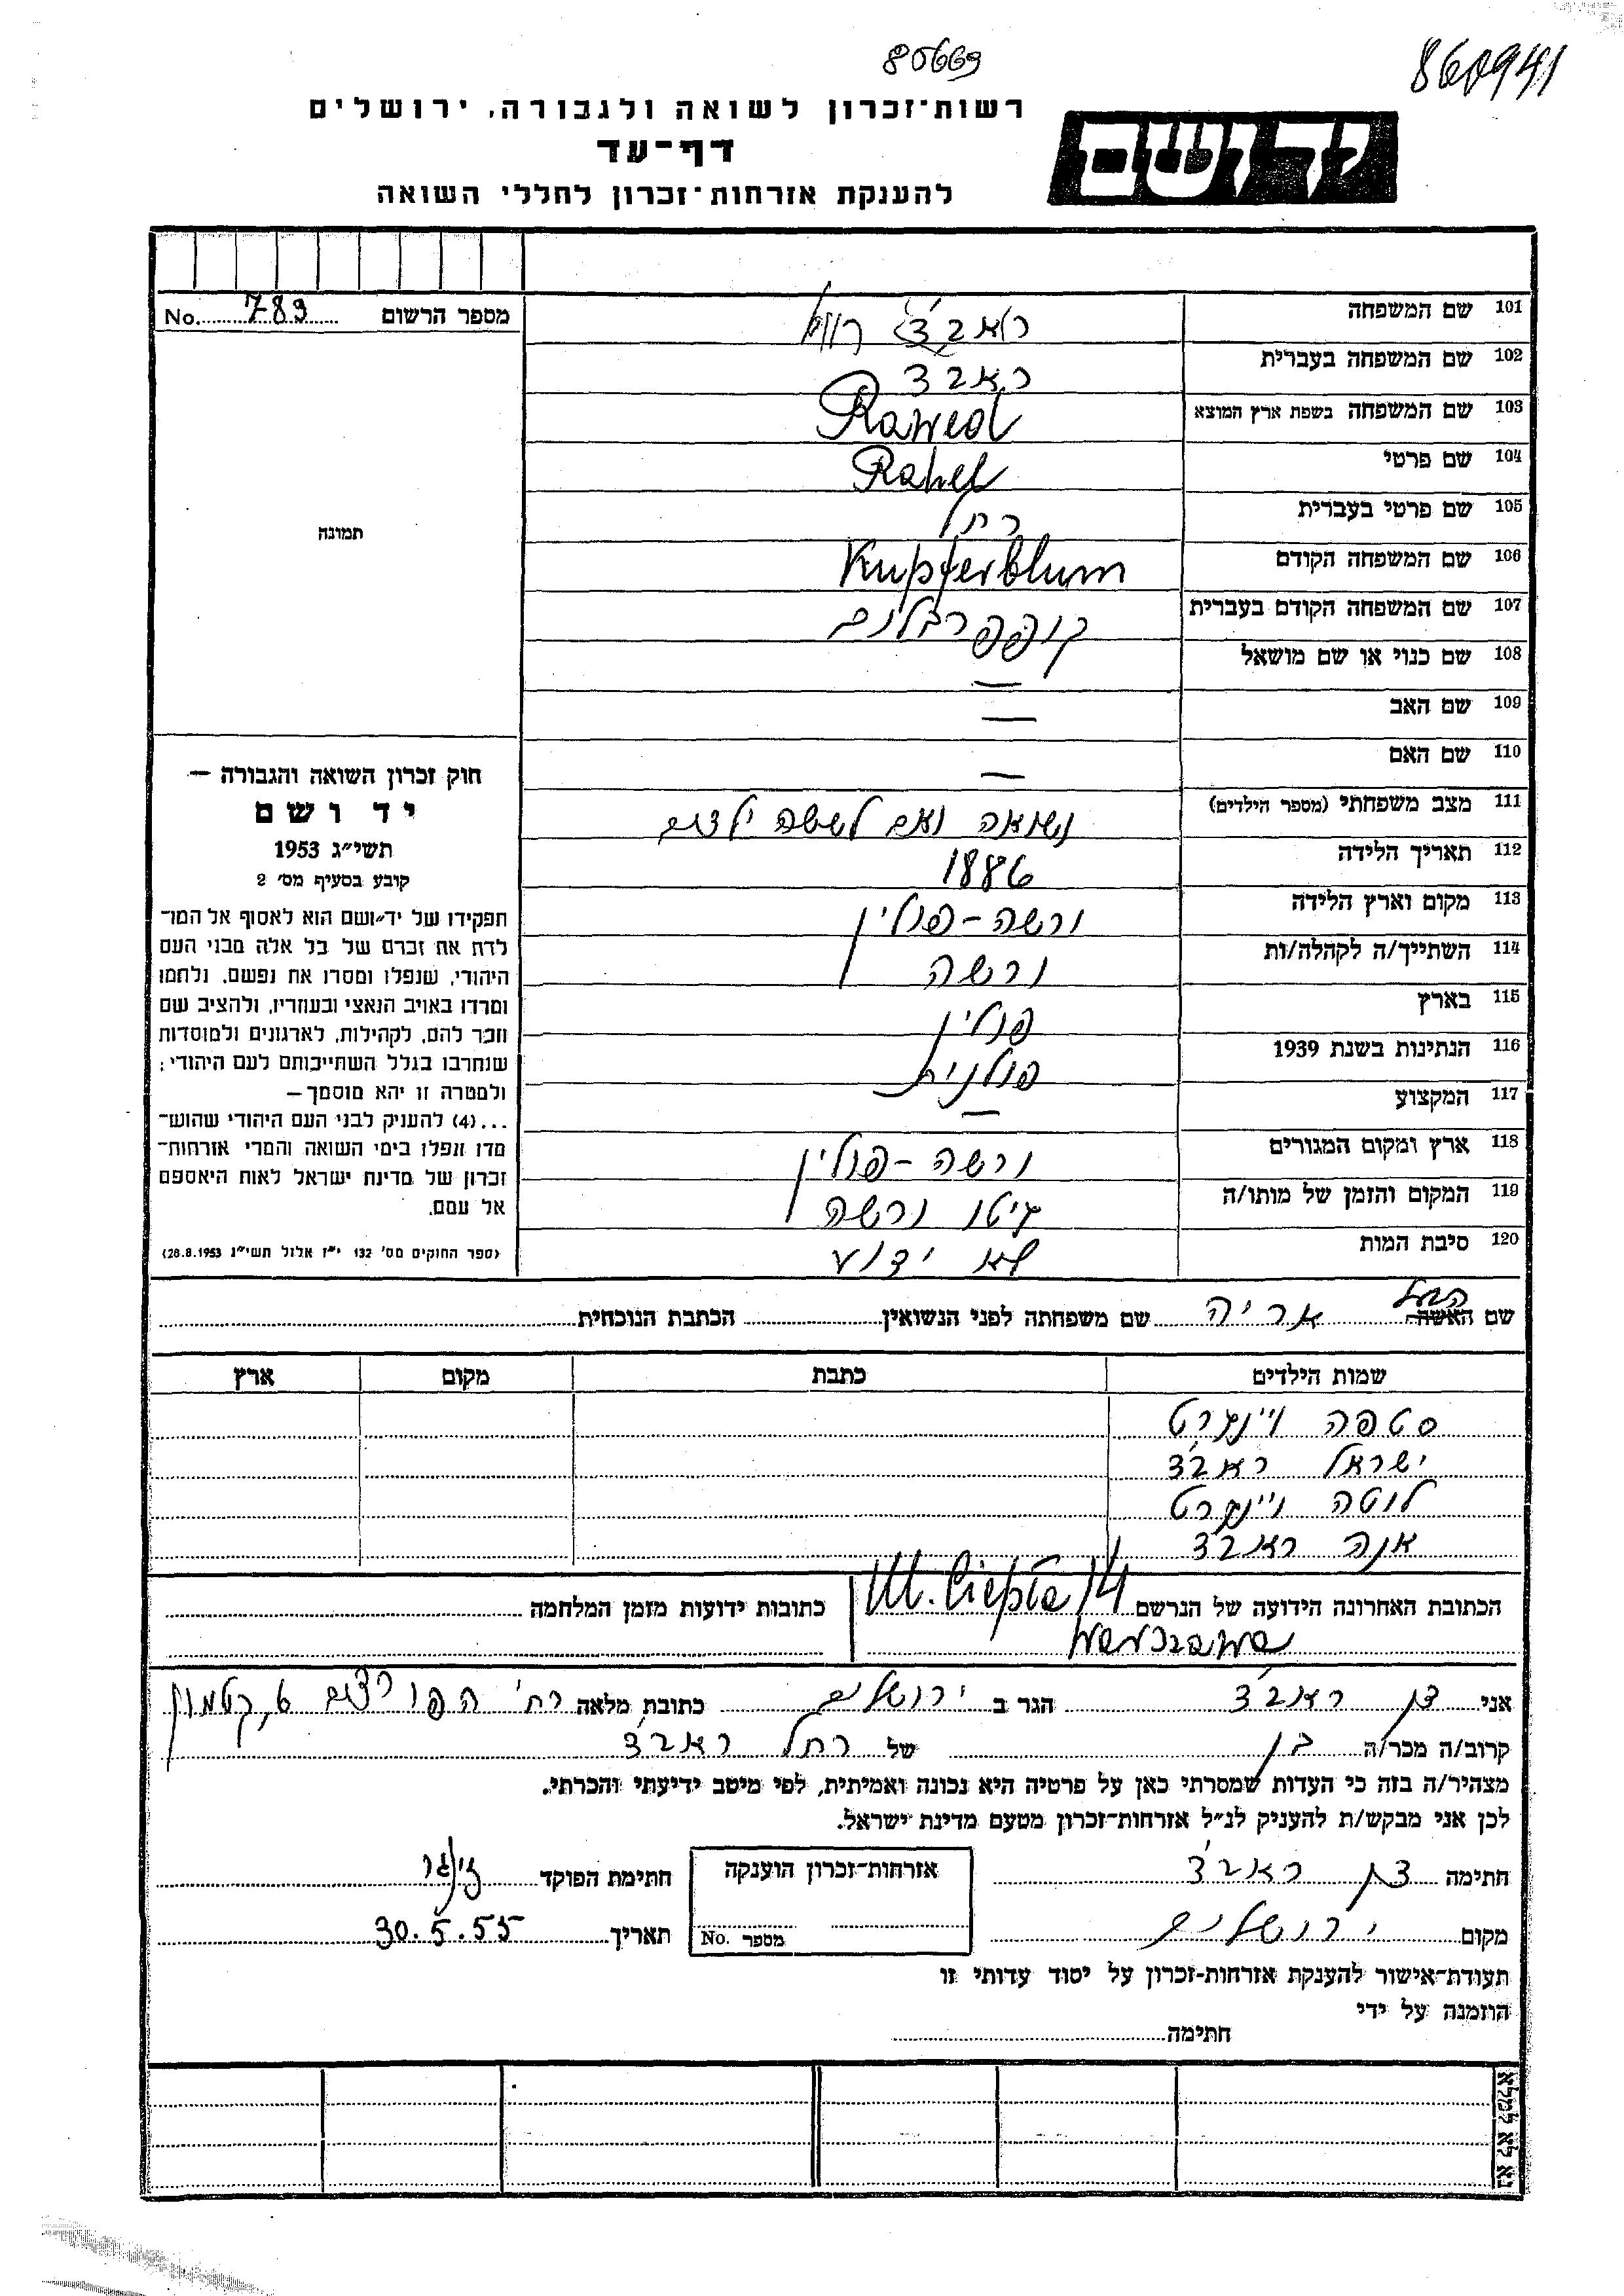 80669
860941
רשות־זכרון לשואה ולגבורה, ירושלים
דף־עד
להענקת אזרחות־זכרון לחללי השואה
יד ושם
מספר הרשום No. 789
101 שם המשפחה ראבצ'
102 שם המשפחה בעברית ראבצ
103 שם המשפחה בשפת ארץ המוצא Rawed
104 שם פרטי Rahel
105 שם פרטי בעברית רחל
106 שם המשפחה הקודם Kupferblum
107 שם המשפחה הקודם בעברית קופפרבלום
108 שם כנוי או שם מושאל —
109 שם האב —
110 שם האם —
111 מצב משפחתי (מספר הילדים) נשואה ואם לששה ילדים
112 תאריך הלידה 1886
113 מקום וארץ הלידה ורשה-פולין
114 השתייך/ה לקהלה/ות ורשה
115 בארץ פולין
116 הנתינות בשנת 1939 פולנית
117 המקצוע —
118 ארץ ומקום המגורים ורשה-פולין
119 המקום והזמן של מותו/ה גיטו ורשה
120 סיבת המות לא ידוע
תמונה
חוק זכרון השואה והגבורה —
יד ושם
תשי״ג 1953
קובע בסעיף מס׳ 2
תפקידו של יד־ושם הוא לאסוף אל המו־
לדת את זכרם של כל אלה מבני העם
היהודי, שנפלו ומסרו את נפשם, נלחמו
ומרדו באויב הנאצי ובעוזריו, ולהציב שם
וזכר להם, לקהילות, לארגונים ולמוסדות
שנחרבו בגלל השתייכותם לעם היהודי;
ולמטרה זו יהא מוסמך—
...(4) להעניק לבני העם היהודי שהוש־
מדו ונפלו בימי השואה והמרי אזרחות־
זכרון של מדינת ישראל לאות היאספם
אל עמם.
(ספר החוקים מס׳ 132 י״ז אלול תשי״ג 28.8.1953)
הבעל
שם האשה אריה שם משפחתה לפני הנשואין הכתבת הנוכחית
שמות הילדים כתבת מקום ארץ
סטפה ויינגרט
ישראל ראבצ'
לוטה ויינגרט
אנה ראבצ'
הכתובת האחרונה הידועה של הנרשם Ul. Ciepła 14 כתובות ידועות מזמן המלחמה
Warszawa
אני דן ראבצ' הגר ב ירושלים כתובת מלאה רח' הפורצים 6, קטמון
קרוב/ה מכר/ה בן של רחל ראבצ'
מצהיר/ה בזה כי העדות שמסרתי כאן על פרטיה היא נכונה ואמיתית, לפי מיטב ידיעתי והכרתי.
לכן אני מבקש/ת להעניק לנ״ל אזרחות־זכרון מטעם מדינת ישראל.
חתימה דן ראבצ' אזרחות־זכרון הוענקה חתימת הפוקד
מקום ירושלים מספר No. תאריך 30.5.55
תעודת־אישור להענקת אזרחות־זכרון על יסוד עדותי זו
הוזמנה על ידי
חתימה
נא לא למלא